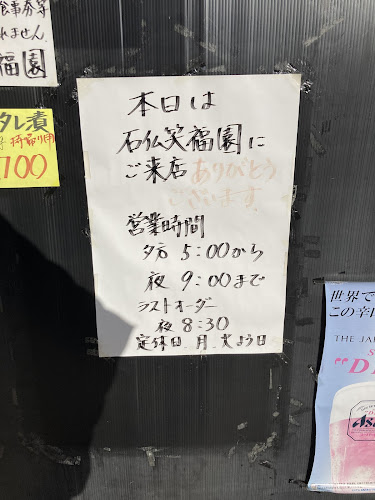 食事券等
れません
福園
タレ漬
100
本日は
石仏笑福園に
ご来店ありがとう
ございます。
営業時間
夕方 5:00から
夜 9:00まで
ラストオーダー
夜 8:30
定休日 月、火よう日
世界で
この辛口
THE JA
"D
Asa